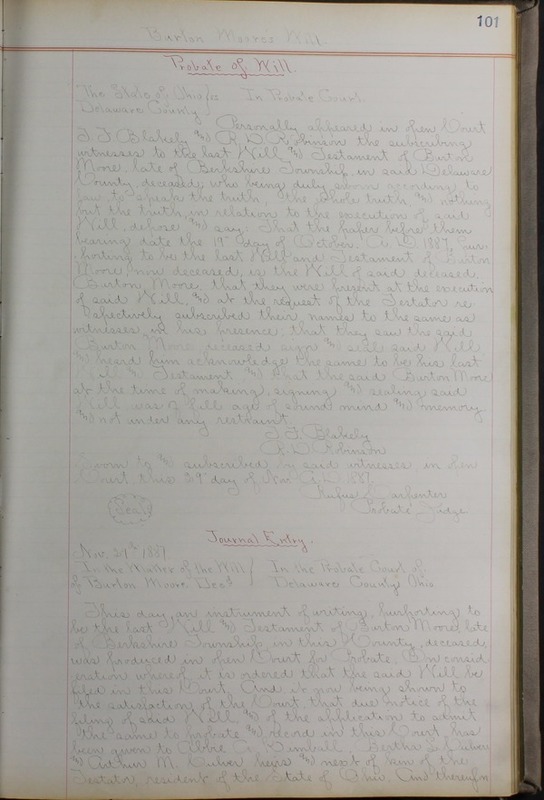 101
Burton Moore's Will.
Probate of Will.
The State of Ohio ss In Probate Court.
Delaware County
Personally appeared in open Court
J. F. Blakely and R. D. Robinson the subscribing
witnesses to the last Will and Testament of Burton
Moore late of Berkshire Township in said Delaware
County, deceased, who being duly sworn according to
law to speak the truth, the whole truth and nothing
but the truth, in relation to the execution of said
Will, depose and say: That the paper before them
bearing date the 19" day of October A. D. 1887, pur-
porting to be the last Will and Testament of Burton
Moore, now deceased, is the Will of said deceased
Burton Moore, that they were present at the execution
of said Will, and at the request of the Testator re
spectively subscribed their names to the same as
witnesses, in his presence, that they saw the said
Burton Moore, deceased sign and seal said Will
and heard him acknowledge the same to be his last
Will and Testament, and that the said Burton Moore
at the time of making, signing and sealing said
Will, was of full age of sound mind and memory
and not under any restraint.
J. F. Blakely
R. D. Robinson
Sworn to and subscribed by said witnesses in open
Court, this 29" day of Nov. A. D. 1887.
Rufus Carpenter
Seal Probate Judge
Journal Entry.
Nov. 29" 1887.
In the Matter of the Will In the Probate Court of
of Burton Moore Decd Delaware County Ohio
This day, an instrument of writing, purporting to
be the last Will and Testament of Burton Moore, late
of Berkshire Township in this County, deceased,
was produced in open Court for Probate. On consid-
eration whereof it is ordered that the said Will be
filed in this Court. And it now being shown to
the satisfaction of the Court, that due notice of the
filing of said Will, and of the application to admit
the same to probate and record in this Court, has
been given to Kimball, Bertha Culver
and Arthur M. Culver heirs and next of kin of the
Testator, resident of the State of Ohio. And thereupon